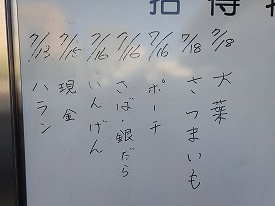 拾得
7/18 大葉
7/18 さつまいも
7/16 ポーチ
7/16 さば・銀だら
7/16 いんげん
7/15 現金
7/13 ハラン